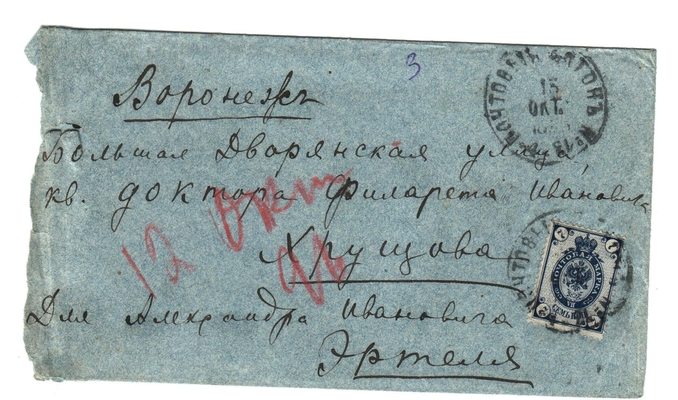 3
ПОЧТОВЫЙ ВАГОНЪ № 13
15
ОКТ.
Воронежъ
Большая Дворянская улица,
кв. доктора Филарета Ивановича
Хрущова
12 Окт
Для Александра Ивановича
Эртеля
ПОЧТОВАЯ МАРКА
СЕМЬ КОП.
7
7